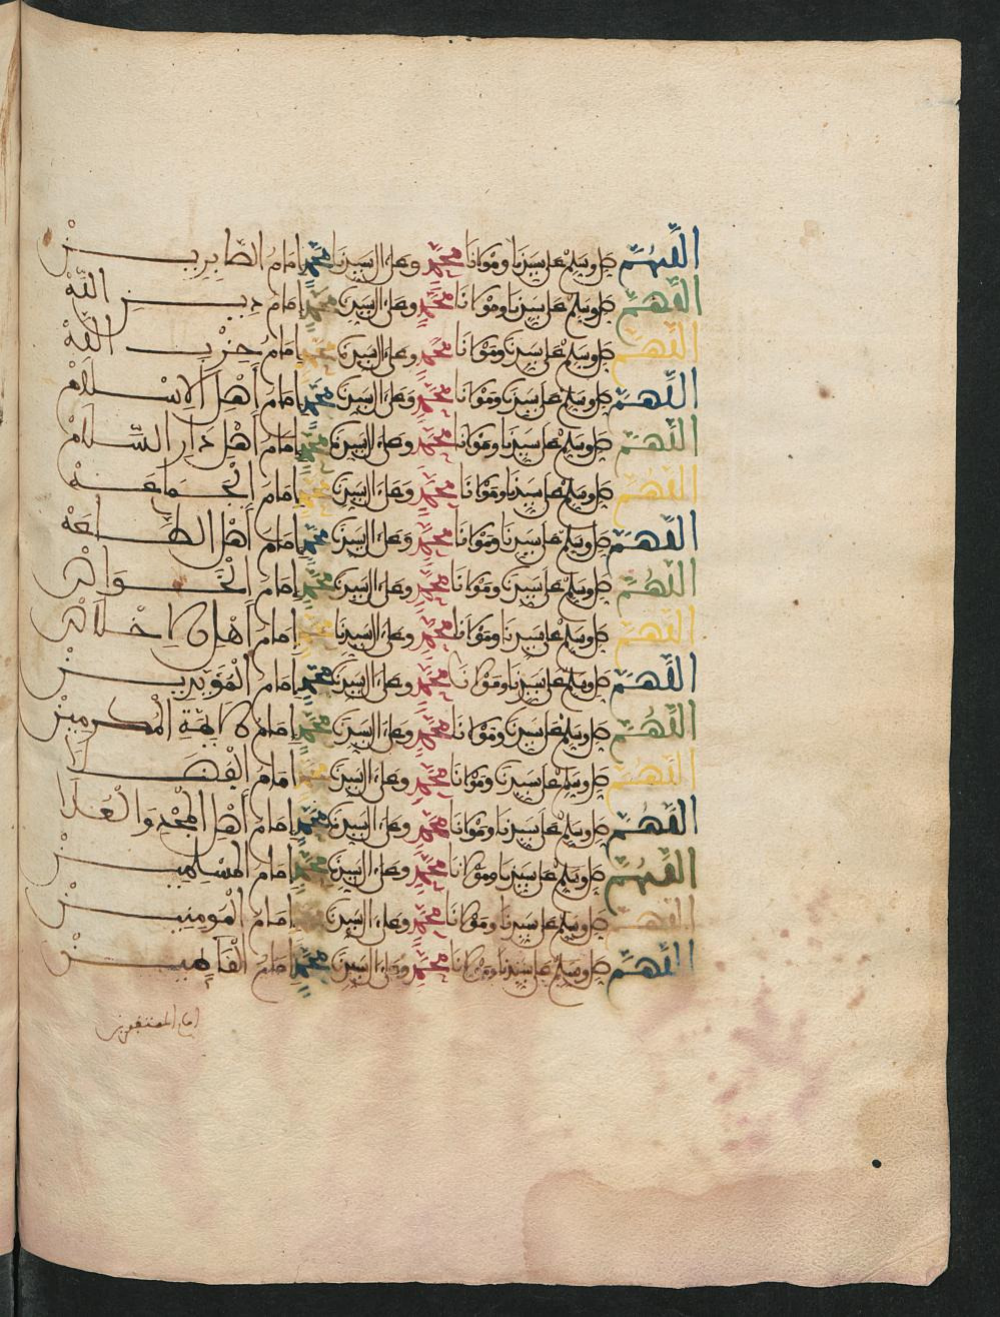 اللَّهُمَّ صل وسلم على سيدنا ومولانا محمد وعلى ءال سيدنا محمد إمام الصَّابرين
اللَّهُمَّ صل وسلم على سيدنا ومولانا محمد وعلى ءال سيدنا محمد إمام دين اللَّه
اللَّهُمَّ صل وسلم على سيدنا ومولانا محمد وعلى ءال سيدنا محمد إمام حزب اللَّه
اللَّهُمَّ صل وسلم على سيدنا ومولانا محمد وعلى ءال سيدنا محمد إمام أهل الإسلام
اللَّهُمَّ صل وسلم على سيدنا ومولانا محمد وعلى ءال سيدنا محمد إمام أهل دار السَّلام
اللَّهُمَّ صل وسلم على سيدنا ومولانا محمد وعلى ءال سيدنا محمد إمام الجماعة
اللَّهُمَّ صل وسلم على سيدنا ومولانا محمد وعلى ءال سيدنا محمد إمام أهل الطَّاعة
اللَّهُمَّ صل وسلم على سيدنا ومولانا محمد وعلى ءال سيدنا محمد إمام
اللَّهُمَّ صل وسلم على سيدنا ومولانا محمد وعلى ءال سيدنا محمد إمام أهل
اللَّهُمَّ صل وسلم على سيدنا ومولانا محمد وعلى ءال سيدنا محمد إمام
اللَّهُمَّ صل وسلم على سيدنا ومولانا محمد وعلى ءال سيدنا محمد إمام
اللَّهُمَّ صل وسلم على سيدنا ومولانا محمد وعلى ءال سيدنا محمد إمام الفضلا
اللَّهُمَّ صل وسلم على سيدنا ومولانا محمد وعلى ءال سيدنا محمد إمام أهل المجد والعلا
اللَّهُمَّ صل وسلم على سيدنا ومولانا محمد وعلى ءال سيدنا محمد إمام المسلمين
اللَّهُمَّ صل وسلم على سيدنا ومولانا محمد وعلى ءال سيدنا محمد إمام المومنين
اللَّهُمَّ صل وسلم على سيدنا ومولانا محمد وعلى ءال سيدنا محمد إمام
امام